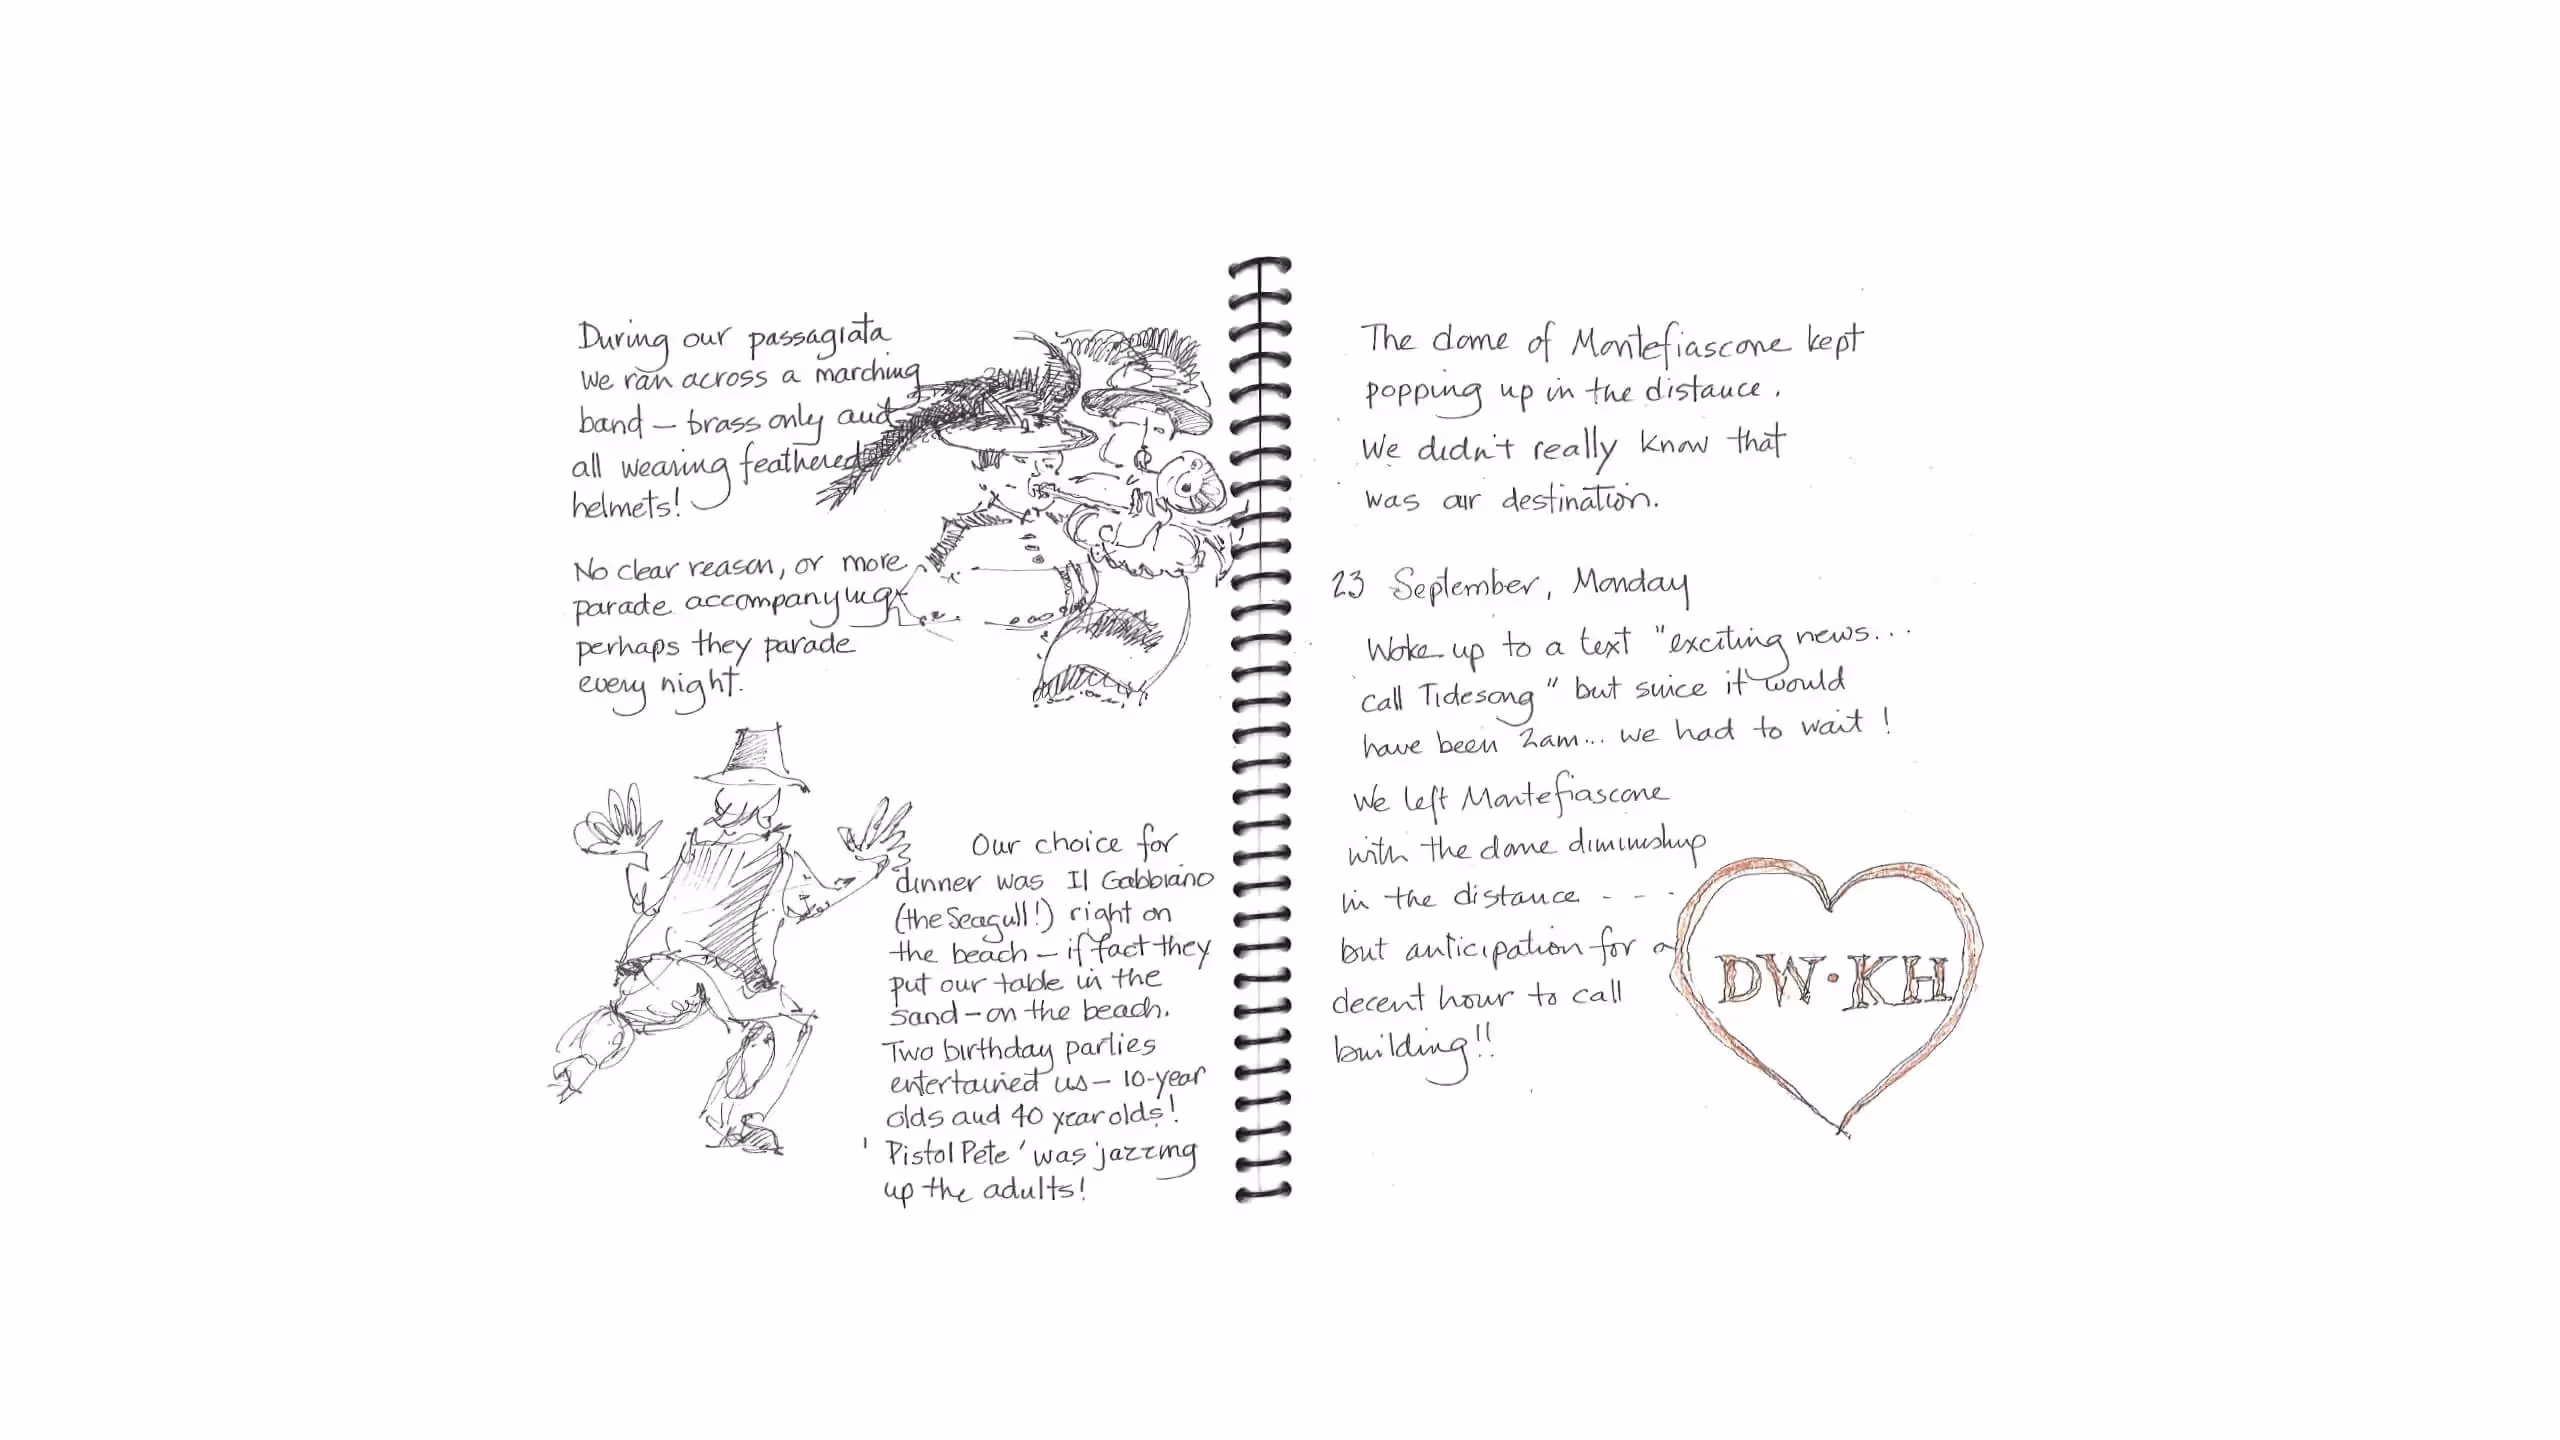 During our passagiata
we ran across a marching
band – brass only and
all wearing feathered
helmets!
No clear reason, or more
parade accompanying
perhaps they parade
every night.
Our choice for
dinner was Il Gabbiano
(the Seagull!) right on
the beach – if fact they
put our table in the
sand – on the beach.
Two birthday parties
entertained us – 10-year
olds and 40 year olds!
'Pistol Pete' was jazzing
up the adults!
The dome of Montefiascone kept
popping up in the distance.
We didn't really know that
was our destination.
23 September, Monday
Woke up to a text "exciting news...
call Tidesong" but since it would
have been 2am... we had to wait!
We left Montefiascone
with the dome diminishing
in the distance - - -
but anticipation for a
decent hour to call
building!!
DW·KH